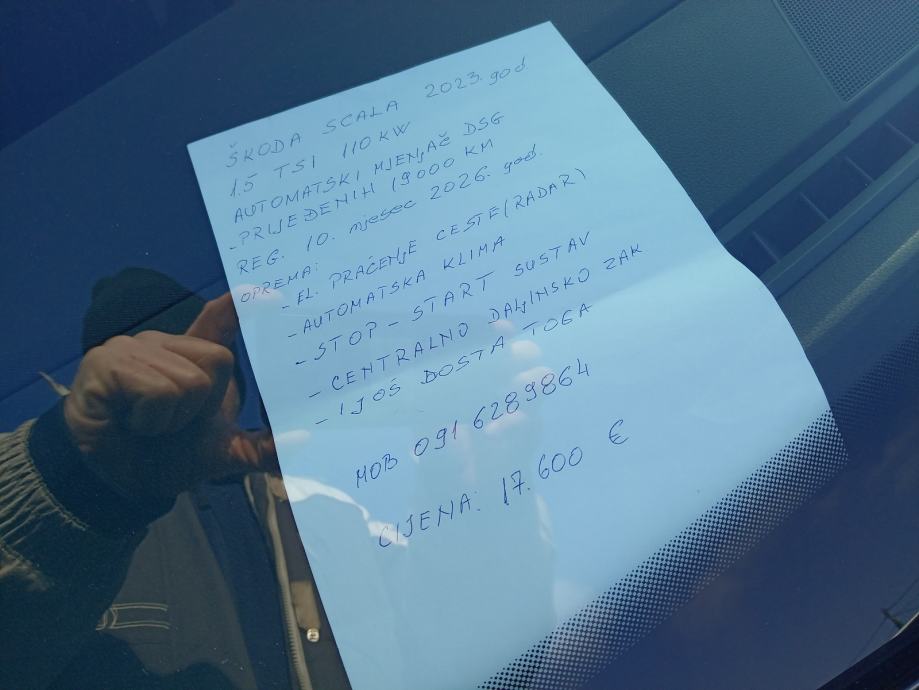 ŠKODA SCALA 2023. god
1.5 TSI 110 KW
AUTOMATSKI MJENJAČ DSG
- PRIJEĐENIH 19000 KM
REG. 10. mjesec 2026. god.
OPREMA:
- EL. PRAĆENJE CESTE (RADAR)
- AUTOMATSKA KLIMA
- STOP - START SUSTAV
- CENTRALNO DALJINSKO ZAK
- I JOŠ DOSTA TOGA
MOB 091 6289864
CIJENA: 17.600 €